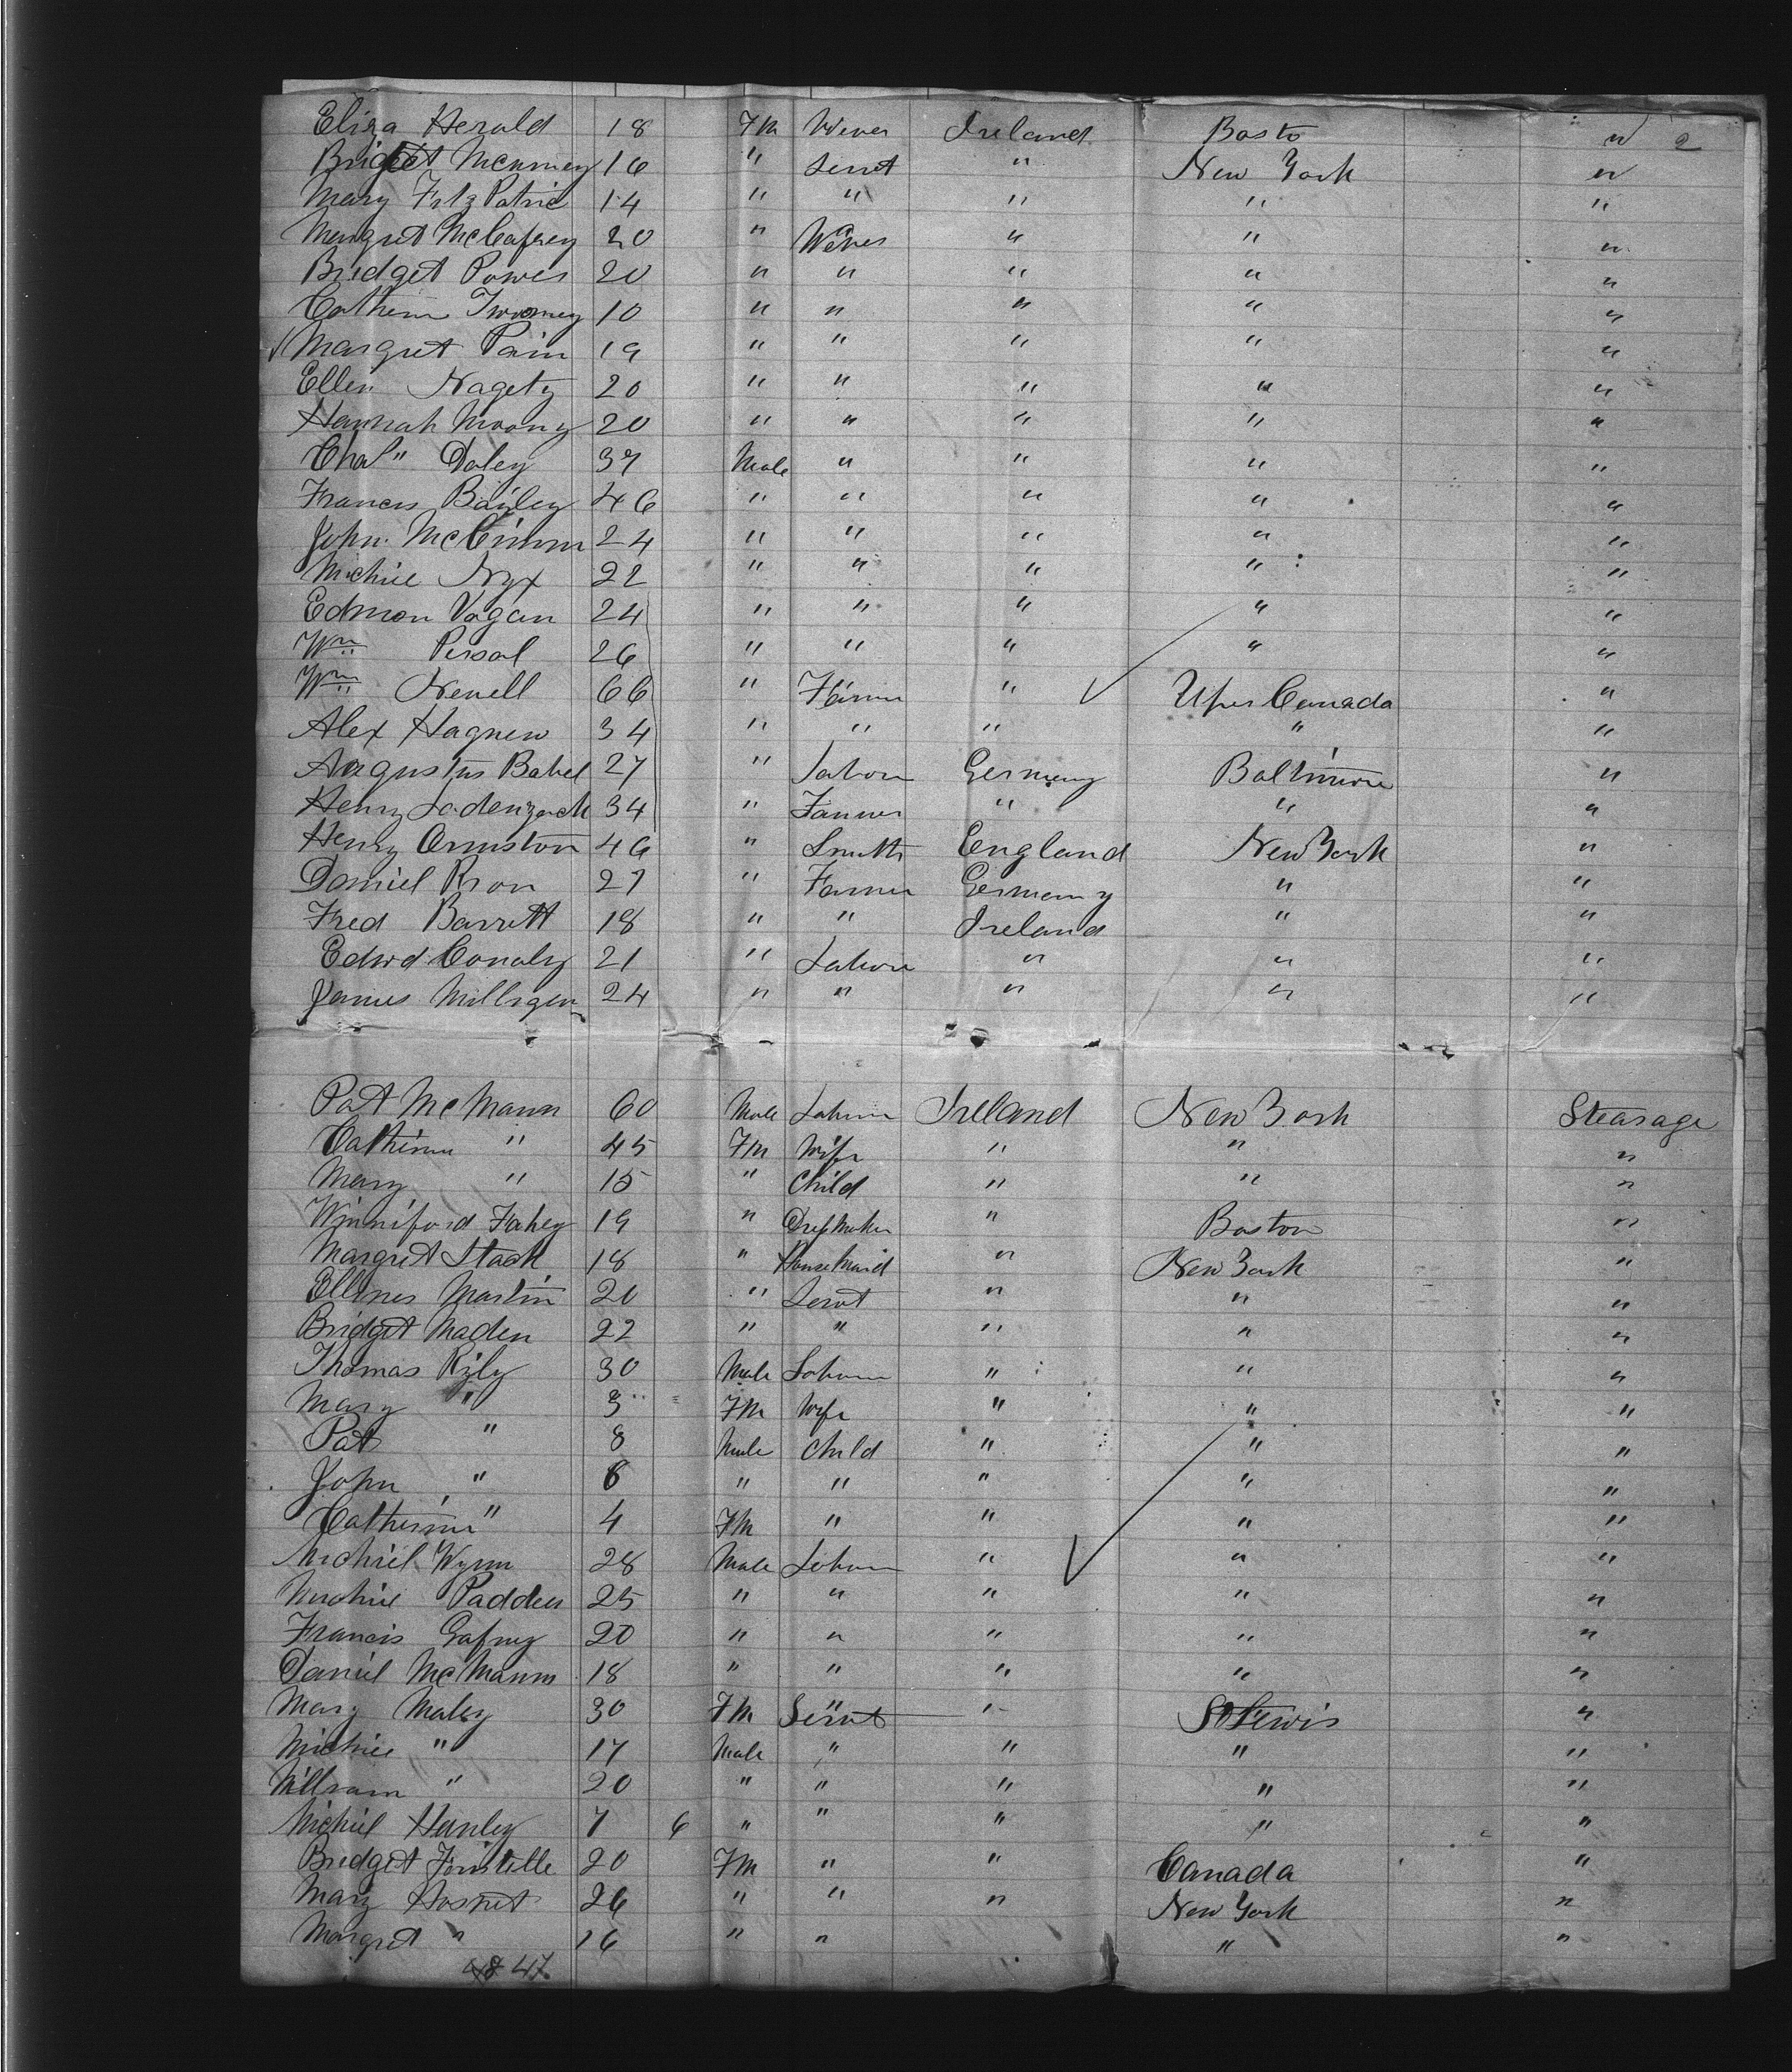 2
Eliza Herald 18 Fm Wever Ireland Bosto "
Bridget McNurney 16 " Servt " New York "
Mary FitzPatric 14 " " " " "
Margret McCafrey 20 " Wever " " "
Bridget Power 20 " " " " "
Cathern Twomey 10 " " " " "
Margret Pain 19 " " " " "
Ellen Nagety 20 " " " " "
Hannah Moony 20 " " " " "
Chas" Daley 37 Male " " " "
Francis Bayley 46 " " " " "
John. McCimm 24 " " " " "
Michiel Nyx 22 " " " " "
Edmon Vagan 24 " " " " "
Wm Persal 26 " " " " "
Wm Newell 66 " Farmr " Uper Canada "
Alex Hagnew 34 " " " " "
Augustus Babel 27 " Labour Germany Baltimore "
Henry Ladenzack 34 " Farmer " " "
Henry Ormiston 46 " Smith England New York "
Daniel Kron 27 " Farmer Germany " "
Fred Barrett 18 " " Ireland " "
Edwd Conaly 21 " Labour " " "
James Milligan 24 " " " " "
Pat McMann 60 Male Labour Ireland New York Stearage
Catherine " 45 Fm Wife " " "
Mary " 15 " Child " " "
Winniford Fahey 19 " DressMaker " Boston "
Margret Stack 18 " HouseMaid " New York "
Ellines Martin 20 " Servt " " "
Bridget Maden 22 " " " " "
Thomas Rily 30 Male Labour " " "
Mary " 3 Fm Wife " " "
Pat " 8 Male Child " " "
John " 6 " " " " "
Catherine " 4 Fm " " " "
Michiel Wynn 28 Male Labour " " "
Michiel Padden 25 " " " " "
Francis Gafney 20 " " " " "
Daniel McMann 18 " " " " "
Mary Maley 30 Fm Servt " St Lewis "
Michiel " 17 Male " " " "
William " 20 " " " " "
Michiel Hanley 7 6 " " " " "
Bridget 20 Fm " " Canada "
Mary Hosnet 26 " " " New York "
Margret " 16 " " " "
48 47